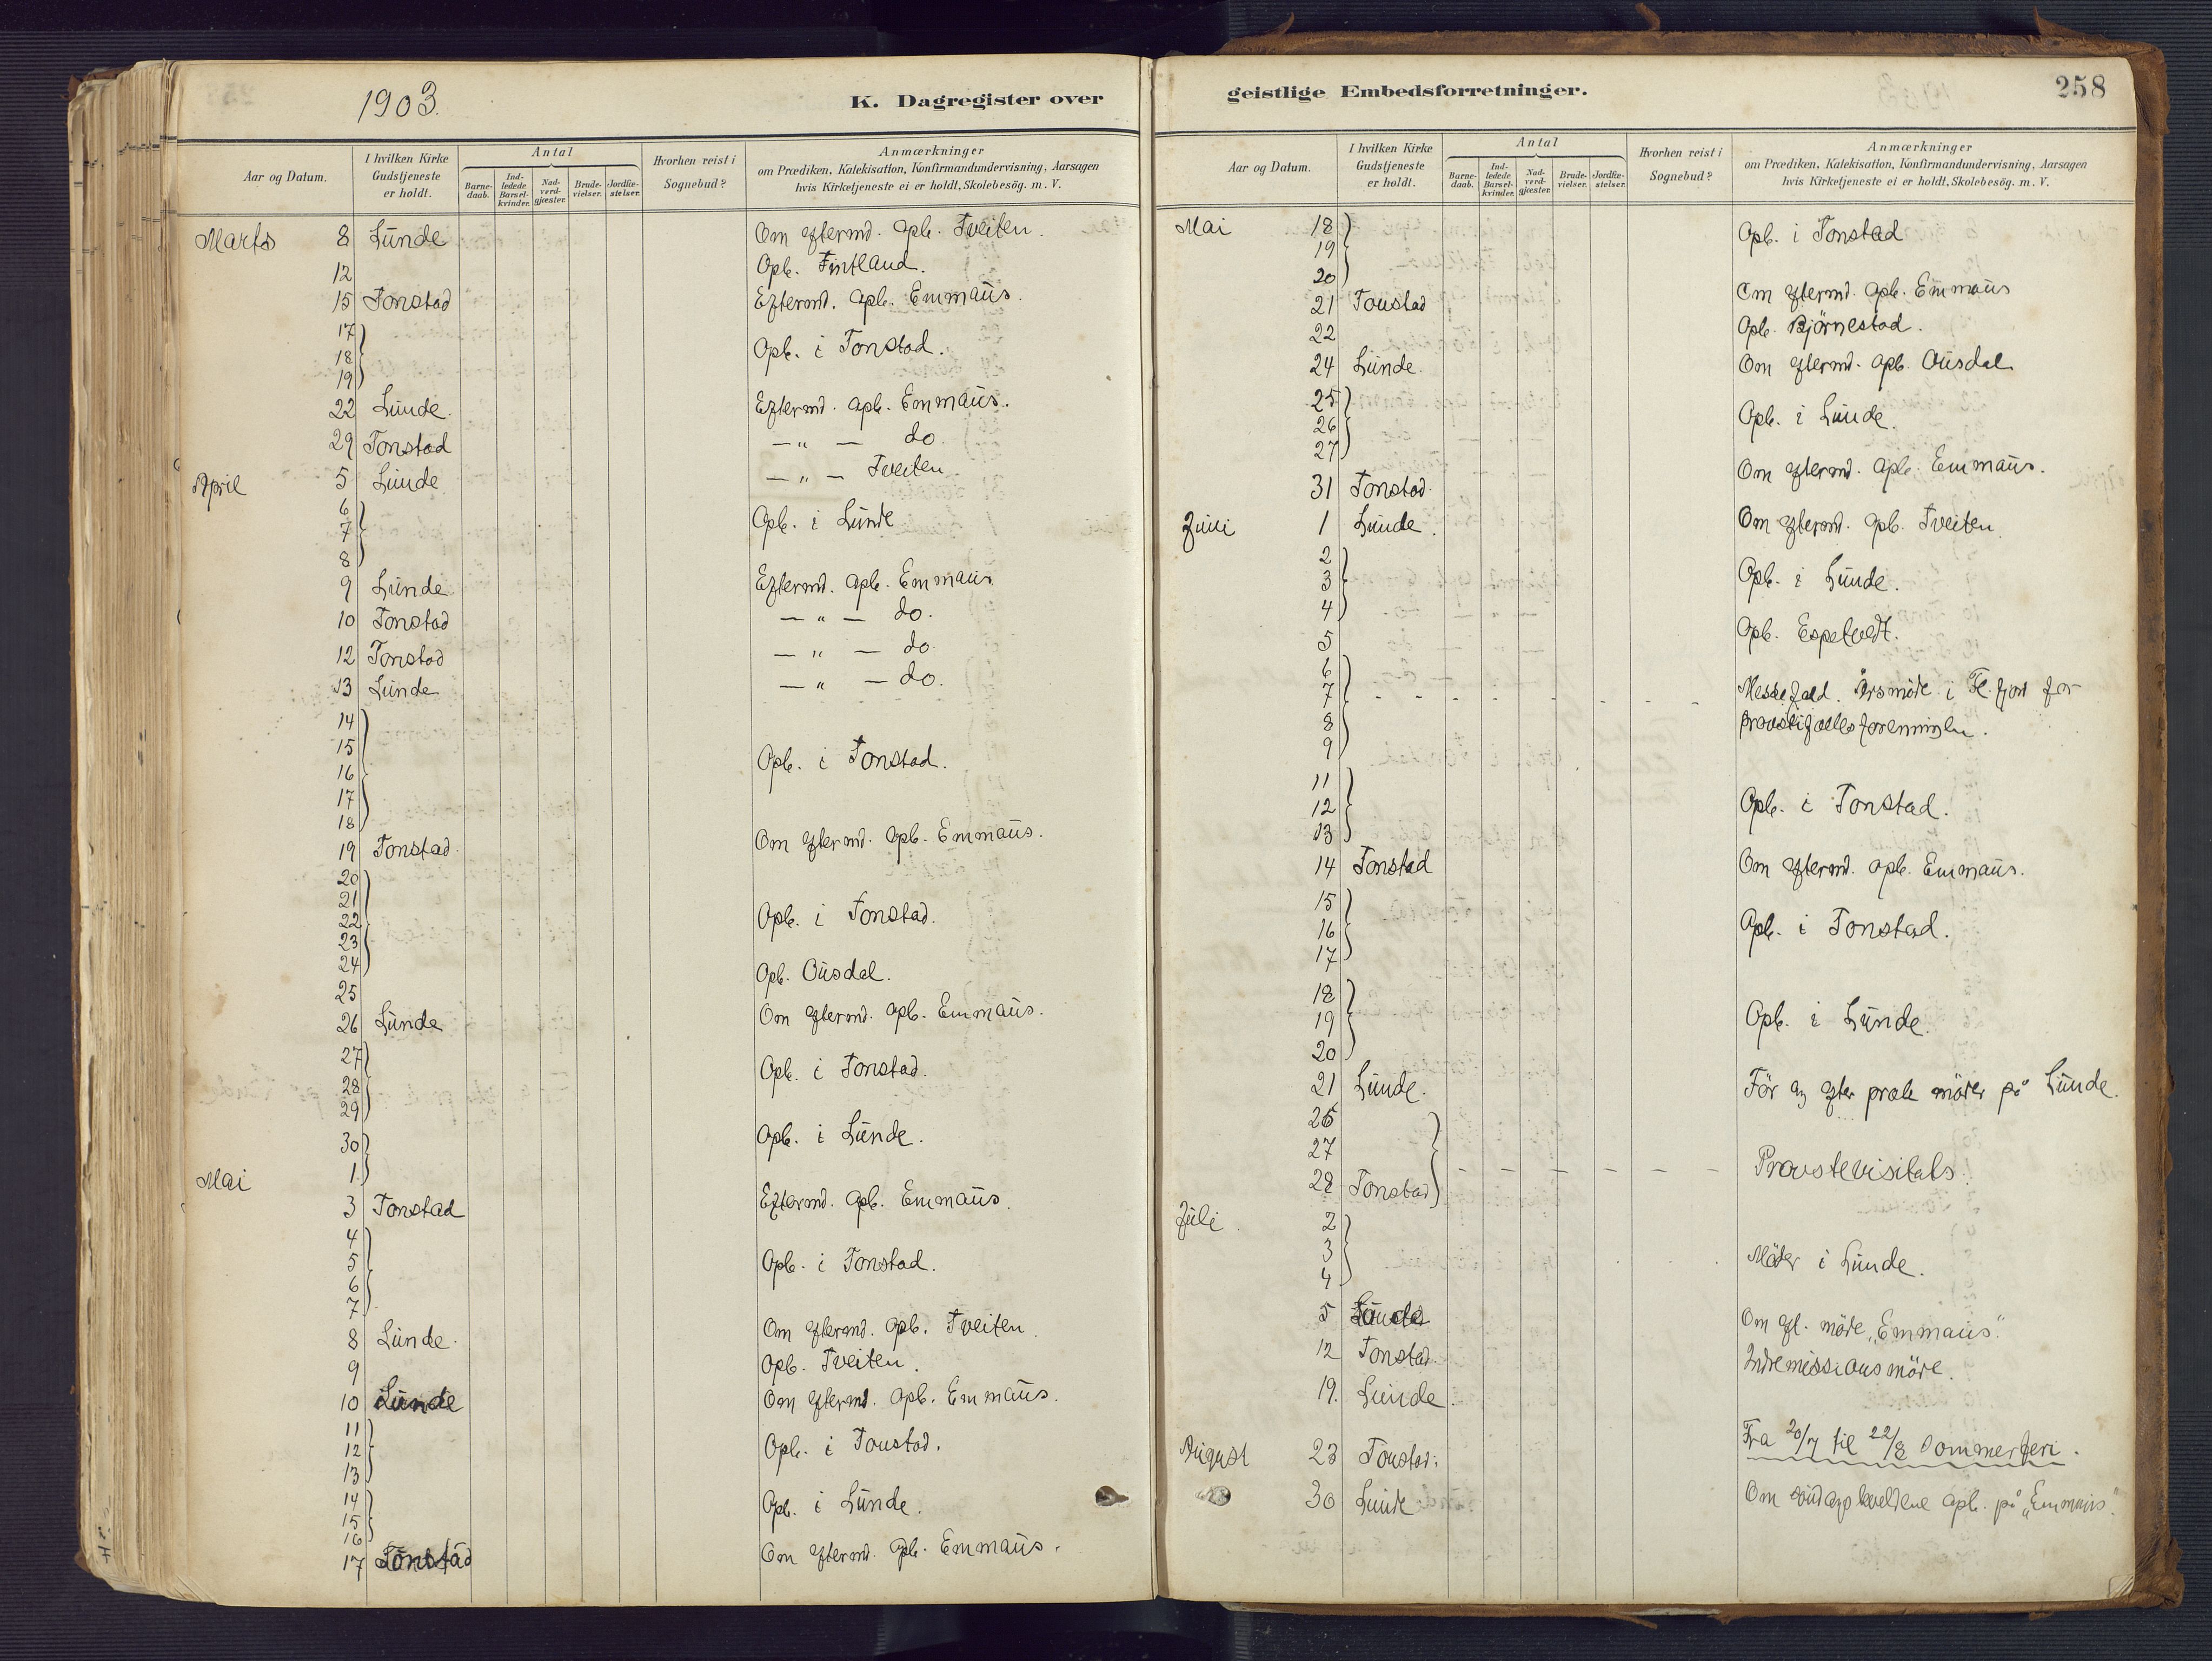 1903.
K. Dagregister over
Aar og Datum.
I hvilken Kirke Gudstjeneste er holdt.
Antal
Barnedaab.
Indledede Barselkvinder.
Nadverdgjæster.
Brudevielser.
Jordfæstelser.
Hvorhen reist i Sognebud?
Anmærkninger
om Prædiken, Katekisation, Konfirmandundervisning, Aarsagen
hvis Kirketjeneste ei er holdt, Skolebesög. m. V.
Marts 8 Lunde Om eftermd. opb. Tveiten.
12 Opb. Fintland.
15 Tonstad Eftermd. opb. Emmaus.
17
18 Opb. i Tonstad.
19
22 Lunde. Eftermd. opb. Emmaus.
29 Tonstad — " — do.
April 5 Lunde — " — Tveiten
6
7 Opb. i Lunde
8
9 Lunde Eftermd. opb. Emmaus
10 Tonstad — " — do.
12 Tonstad — " — do
13 Lunde — " — do.
14
15
16 Opb. i Tonstad.
17
18
19 Tonstad. Om eftermd. opb. Emmaus.
20
21
22 Opb. i Tonstad.
23
24
25 Opb. Ousdal.
26 Lunde Om eftermd. opb. Emmaus.
27
28 Opb. i Tonstad.
29
30 Opb. i Lunde.
Mai 1.
3 Tonstad Eftermd. opb. Emmaus.
4
5 Opb. i Tonstad.
6
7
8 Lunde. Om eftermd. opb. Tveiten.
9 Opb. Tveiten.
10 Lunde Om eftermd. opb. Emmaus.
11
12 Opb. i Tonstad.
13
14
15 Opb. i Lunde.
16
17 Tonstad Om eftermd. opb. Emmaus.
geistlige Embedsforretninger.
258
Aar og Datum.
I hvilken Kirke Gudstjeneste er holdt.
Antal
Barnedaab.
Indledede Barselkvinder.
Nadverdgjæster.
Brudevielser.
Jordfæstelser.
Hvorhen reist i Sognebud?
Anmærkninger
om Prædiken, Katekisation, Konfirmandundervisning, Aarsagen
hvis Kirketjeneste ei er holdt, Skolebesög. m. V.
Mai 18 Opb. i Tonstad
19
20
21 Tonstad Om eftermd. opb. Emmaus
22 Opb. Björnestad.
24 Lunde. Om eftermd. opb. Ousdal
25
26 Opb. i Lunde.
27
31 Tonstad. Om eftermd. opb. Emmaus.
Juni 1 Lunde. Om eftermd. opb. Tveiten.
2
3 Opb. i Lunde.
4
5 Opb. Espetvedt.
6
7 Messefald. Årsmöde i Fl. fjord for
8 provstifællesforeningen.
9
11
12 Opb. i Tonstad.
13
14 Tonstad Om eftermd. opb. Emmaus.
15
16 Opb. i Tonstad.
17
18
19 Opb. i Lunde.
20
21 Lunde. Før og efter præk möder på Lunde.
26
27 Provstevisitats.
28 Tonstad
Juli. 2
3 Möder i Lunde.
4
5 Lunde Om eft. möde „Emmaus".
12 Tonstad. Indremissionsmöde.
19. Lunde.
Fra 20/7 til 22/8 Sommerferi.
August 23 Tonstad.
30 Lunde Om söndagskveldene opb. på „Emmaus".